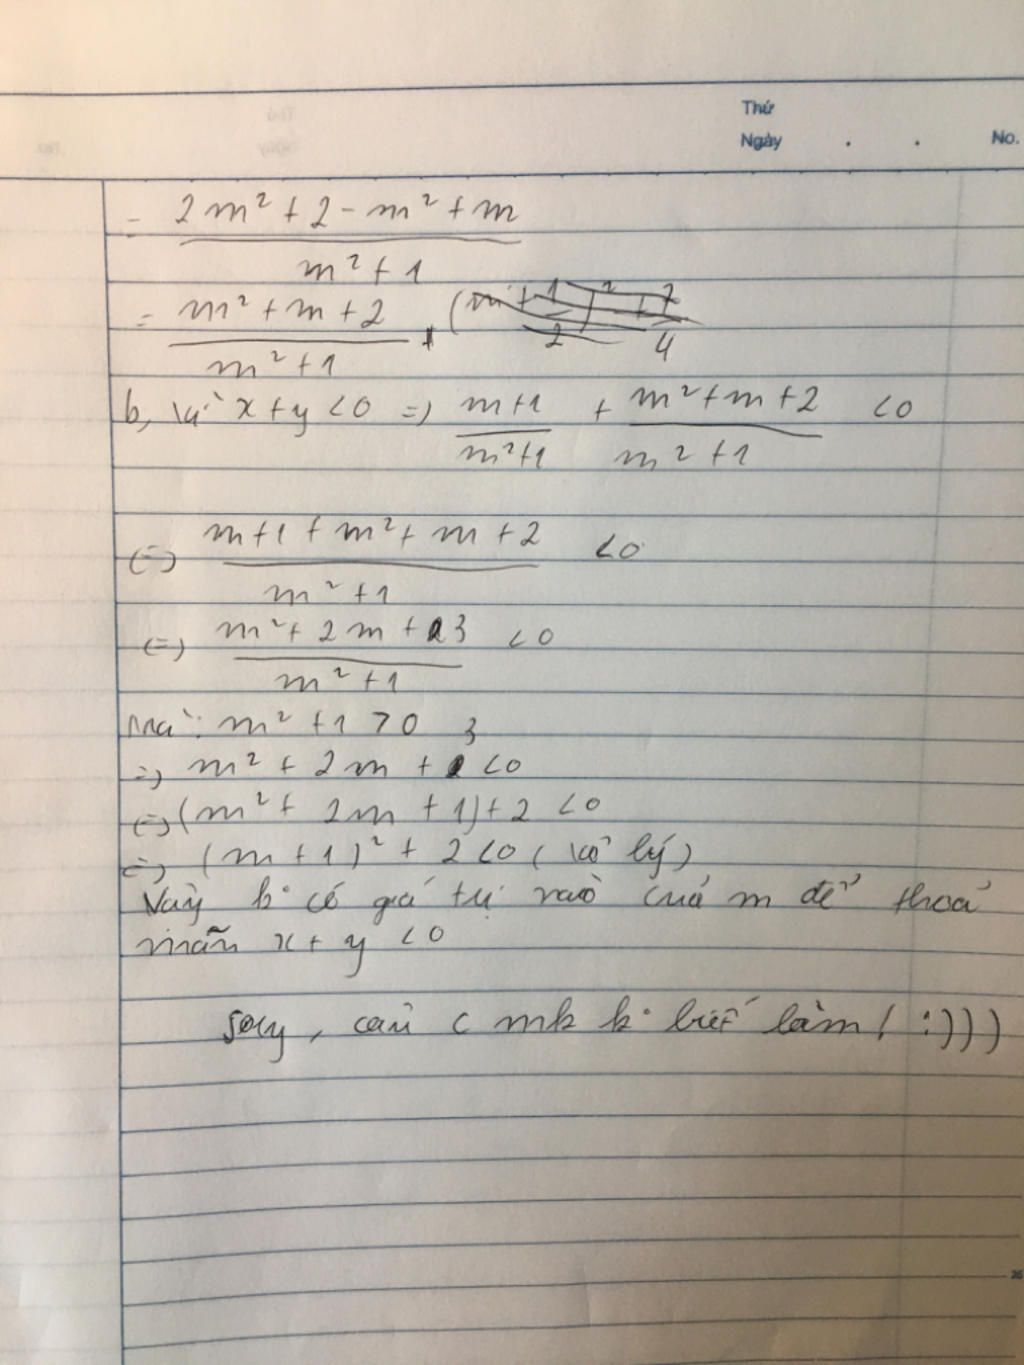 Thứ
Ngày . . No.
= (2m² + 2 - m² + m)/(m² + 1)
= (m² + m + 2)/(m² + 1)
b, Vì x + y < 0 => (m+1)/(m²+1) + (m² + m + 2)/(m² + 1) < 0
(=) (m+1 + m² + m + 2)/(m² + 1) < 0
(=) (m² + 2m + 3)/(m² + 1) < 0
Mà: m² + 1 > 0
=> m² + 2m + 3 < 0
(=) (m² + 2m + 1) + 2 < 0
(=) (m + 1)² + 2 < 0 (vô lý)
Vậy k có giá trị nào của m để thoả
mãn x + y < 0
sory, câu c mk k biết làm ! :)))
26